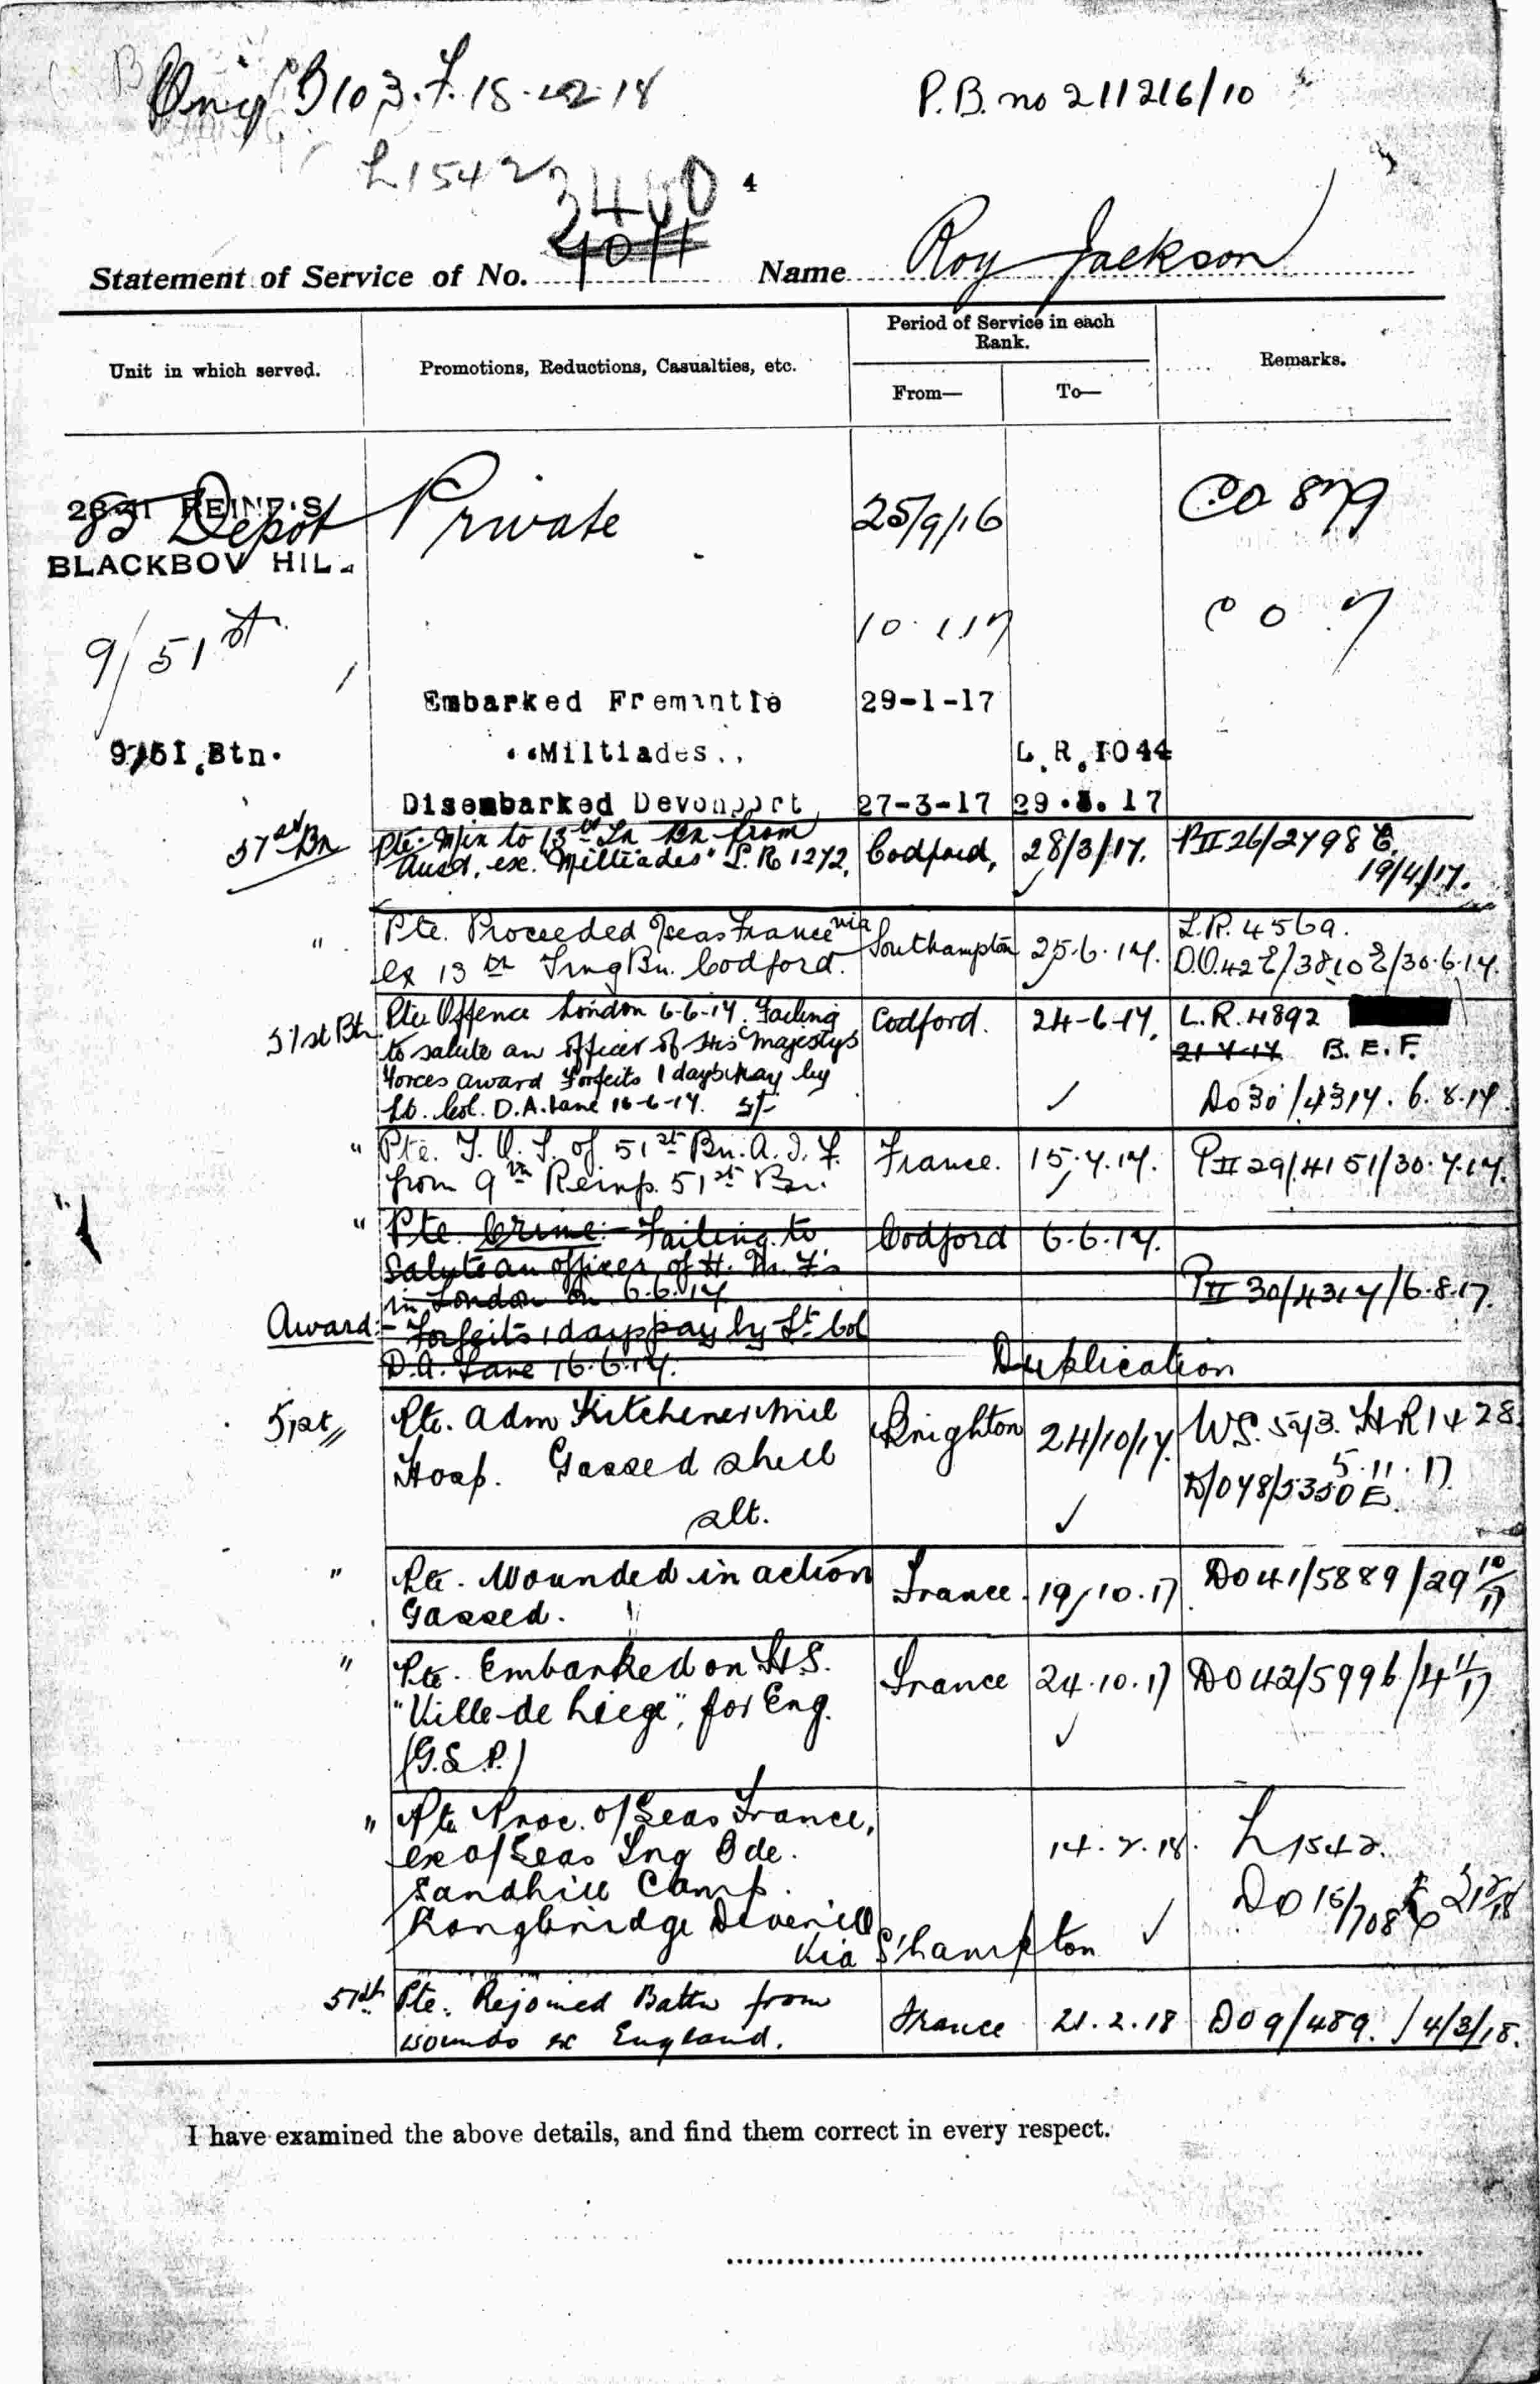 B103. F. 18.12.18
P.B. no 211216/10
L1542
3460
4
4011
Statement of Service of No. Name Roy Jackson
Unit in which served. Promotions, Reductions, Casualties, etc. Period of Service in each Rank. Remarks.
From— To—
85 Depot Private 25/9/16 CO 879
BLACKBOY HIL
9/51st 10.1.17 C O 7
Embarked Fremantle 29-1-17
9/51.Btn. Miltiades L.R.1044
Disembarked Devonport 27-3-17 29.3.17
51st Bn Pte. M/in to 13th Tn Bn from Codford, 28/3/17. PII 26/2798 E.
Aust. ex. "Miltiades" L.R 1272. 19/4/17.
" Pte. Proceeded O/seas France via Southampton 25.6.17. L.R. 4569.
ex 13th Trng Bn. Codford. D.O.42E/3810E/30.6.17.
51st Btn Pte Offence London 6-6-17. Failing Codford. 24-6-17. L.R.4892
to salute an officer of His Majestys 21-7-17 B.E.F.
Forces award Forfeits 1 days pay by
Lt. Col. D.A. Lane 16-6-17. 5/- DO 30/4317. 6.8.17
" Pte. T.O.S. of 51st Bn. A.I.F. France. 15.7.17. PII 29/4151/30.7.17.
from 9th Reinf. 51st Bn.
" Pte. Crime:- Failing to Codford 6.6.17.
Salute an officer of H.M.F's
in London on 6.6.17 PII 30/4317/6.8.17.
Award:- Forfeits 1 days pay by Lt Col
D.A. Lane 16.6.17. Duplication
51st Pte. adm Kitchener Mil Brighton 24/10/17. WS.543. HR1428.
Hosp. Gassed shell 5.11.17
slt. D/O48/5350E.
" Pte. Wounded in action France. 19.10.17 DO41/5889/29 10/17
Gassed.
" Pte. Embarked on H.S. France 24.10.17 DO42/5996/4 11/17
"Ville de Liege", for Eng.
(G.S.P.)
" Pte Proc. O/Seas France,
ex O/Seas Tng Bde. 14.2.18. L1542.
Sandhill Camp. DO 15/708
Longbridge Deverill
Via S'hampton
51st Pte. Rejoined Battn from France 21.2.18 DO9/489. /4/3/18.
wounds ex England.
I have examined the above details, and find them correct in every respect.